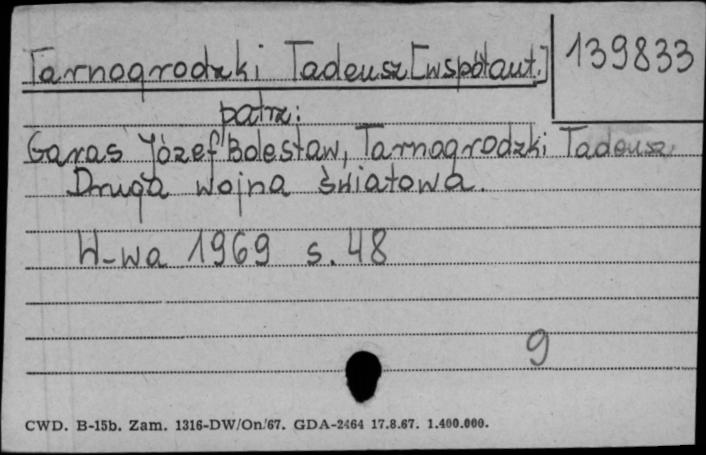 Tarnogrodzki Tadeusz [współaut.] 139833
patrz:
Garas Józef Bolesław, Tarnogrodzki Tadeusz
Druga wojna światowa.
W-wa 1969 s. 48
9
CWD. B-15b. Zam. 1316-DW/On/67. GDA-2464 17.8.67. 1.400.000.